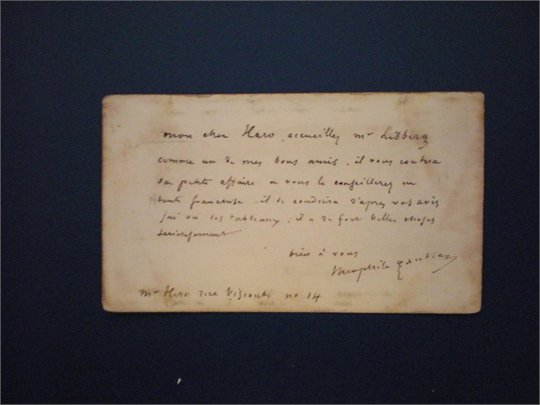 mon cher Haro, accueillez mr Lidberg
comme un de mes bons amis. il vous contera
sa petite affaire et vous le conseillerez en
toute franchise. il se conduira d'apres vos avis
j'ai vu ses tableaux, il a de fort belles choses
bien à vous
Theophile Gautier
mr Haro rue Visconti no 14